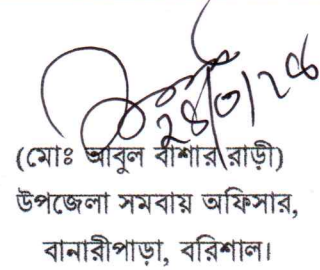 ২৪/৩/২৪
(মোঃ আবুল বাশার রাড়ী)
উপজেলা সমবায় অফিসার,
বানারীপাড়া, বরিশাল।